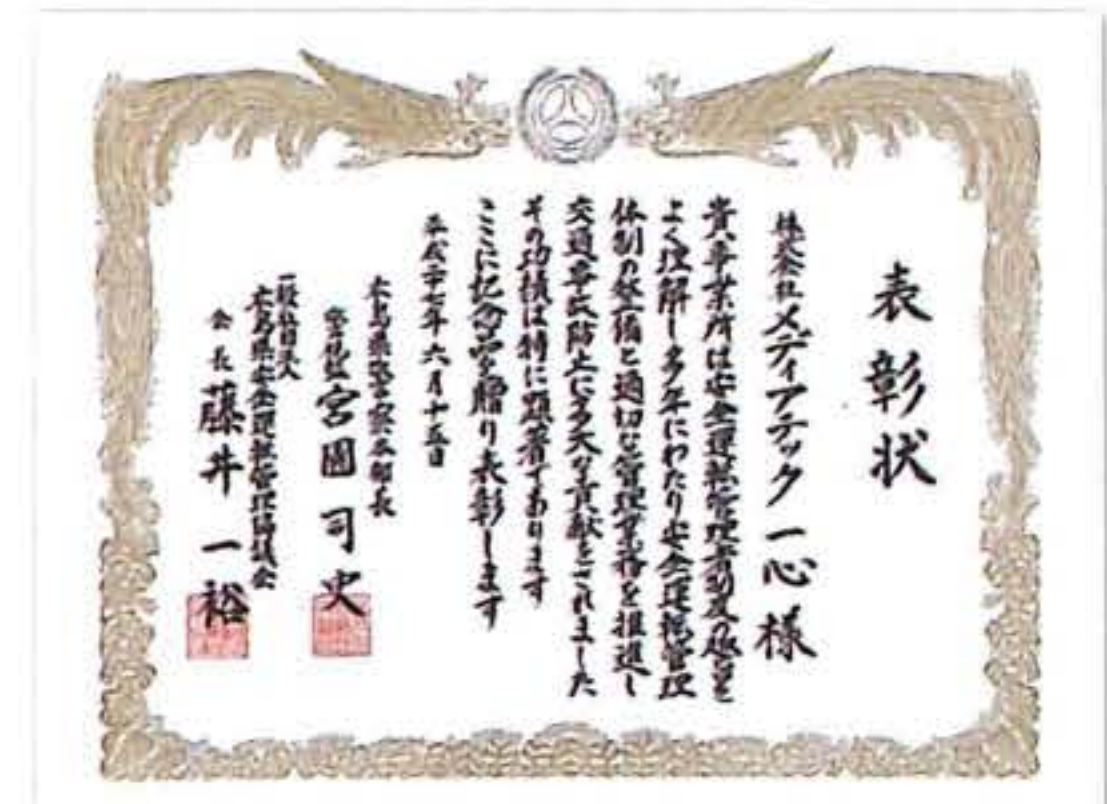 表彰状
株式会社メディアテック一心様
貴事業所は安全運転管理者制度の趣旨を
よく理解し多年にわたり安全運転管理
体制の整備と適切な管理業務を推進し
交通事故防止に多大な貢献をされました
その功績は特に顕著であります
ここに記念品を贈り表彰します
平成二十七年六月十五日
広島県警察本部長
警視監 宮園司史
一般社団法人
広島県安全運転管理協議会
会長 藤井一裕